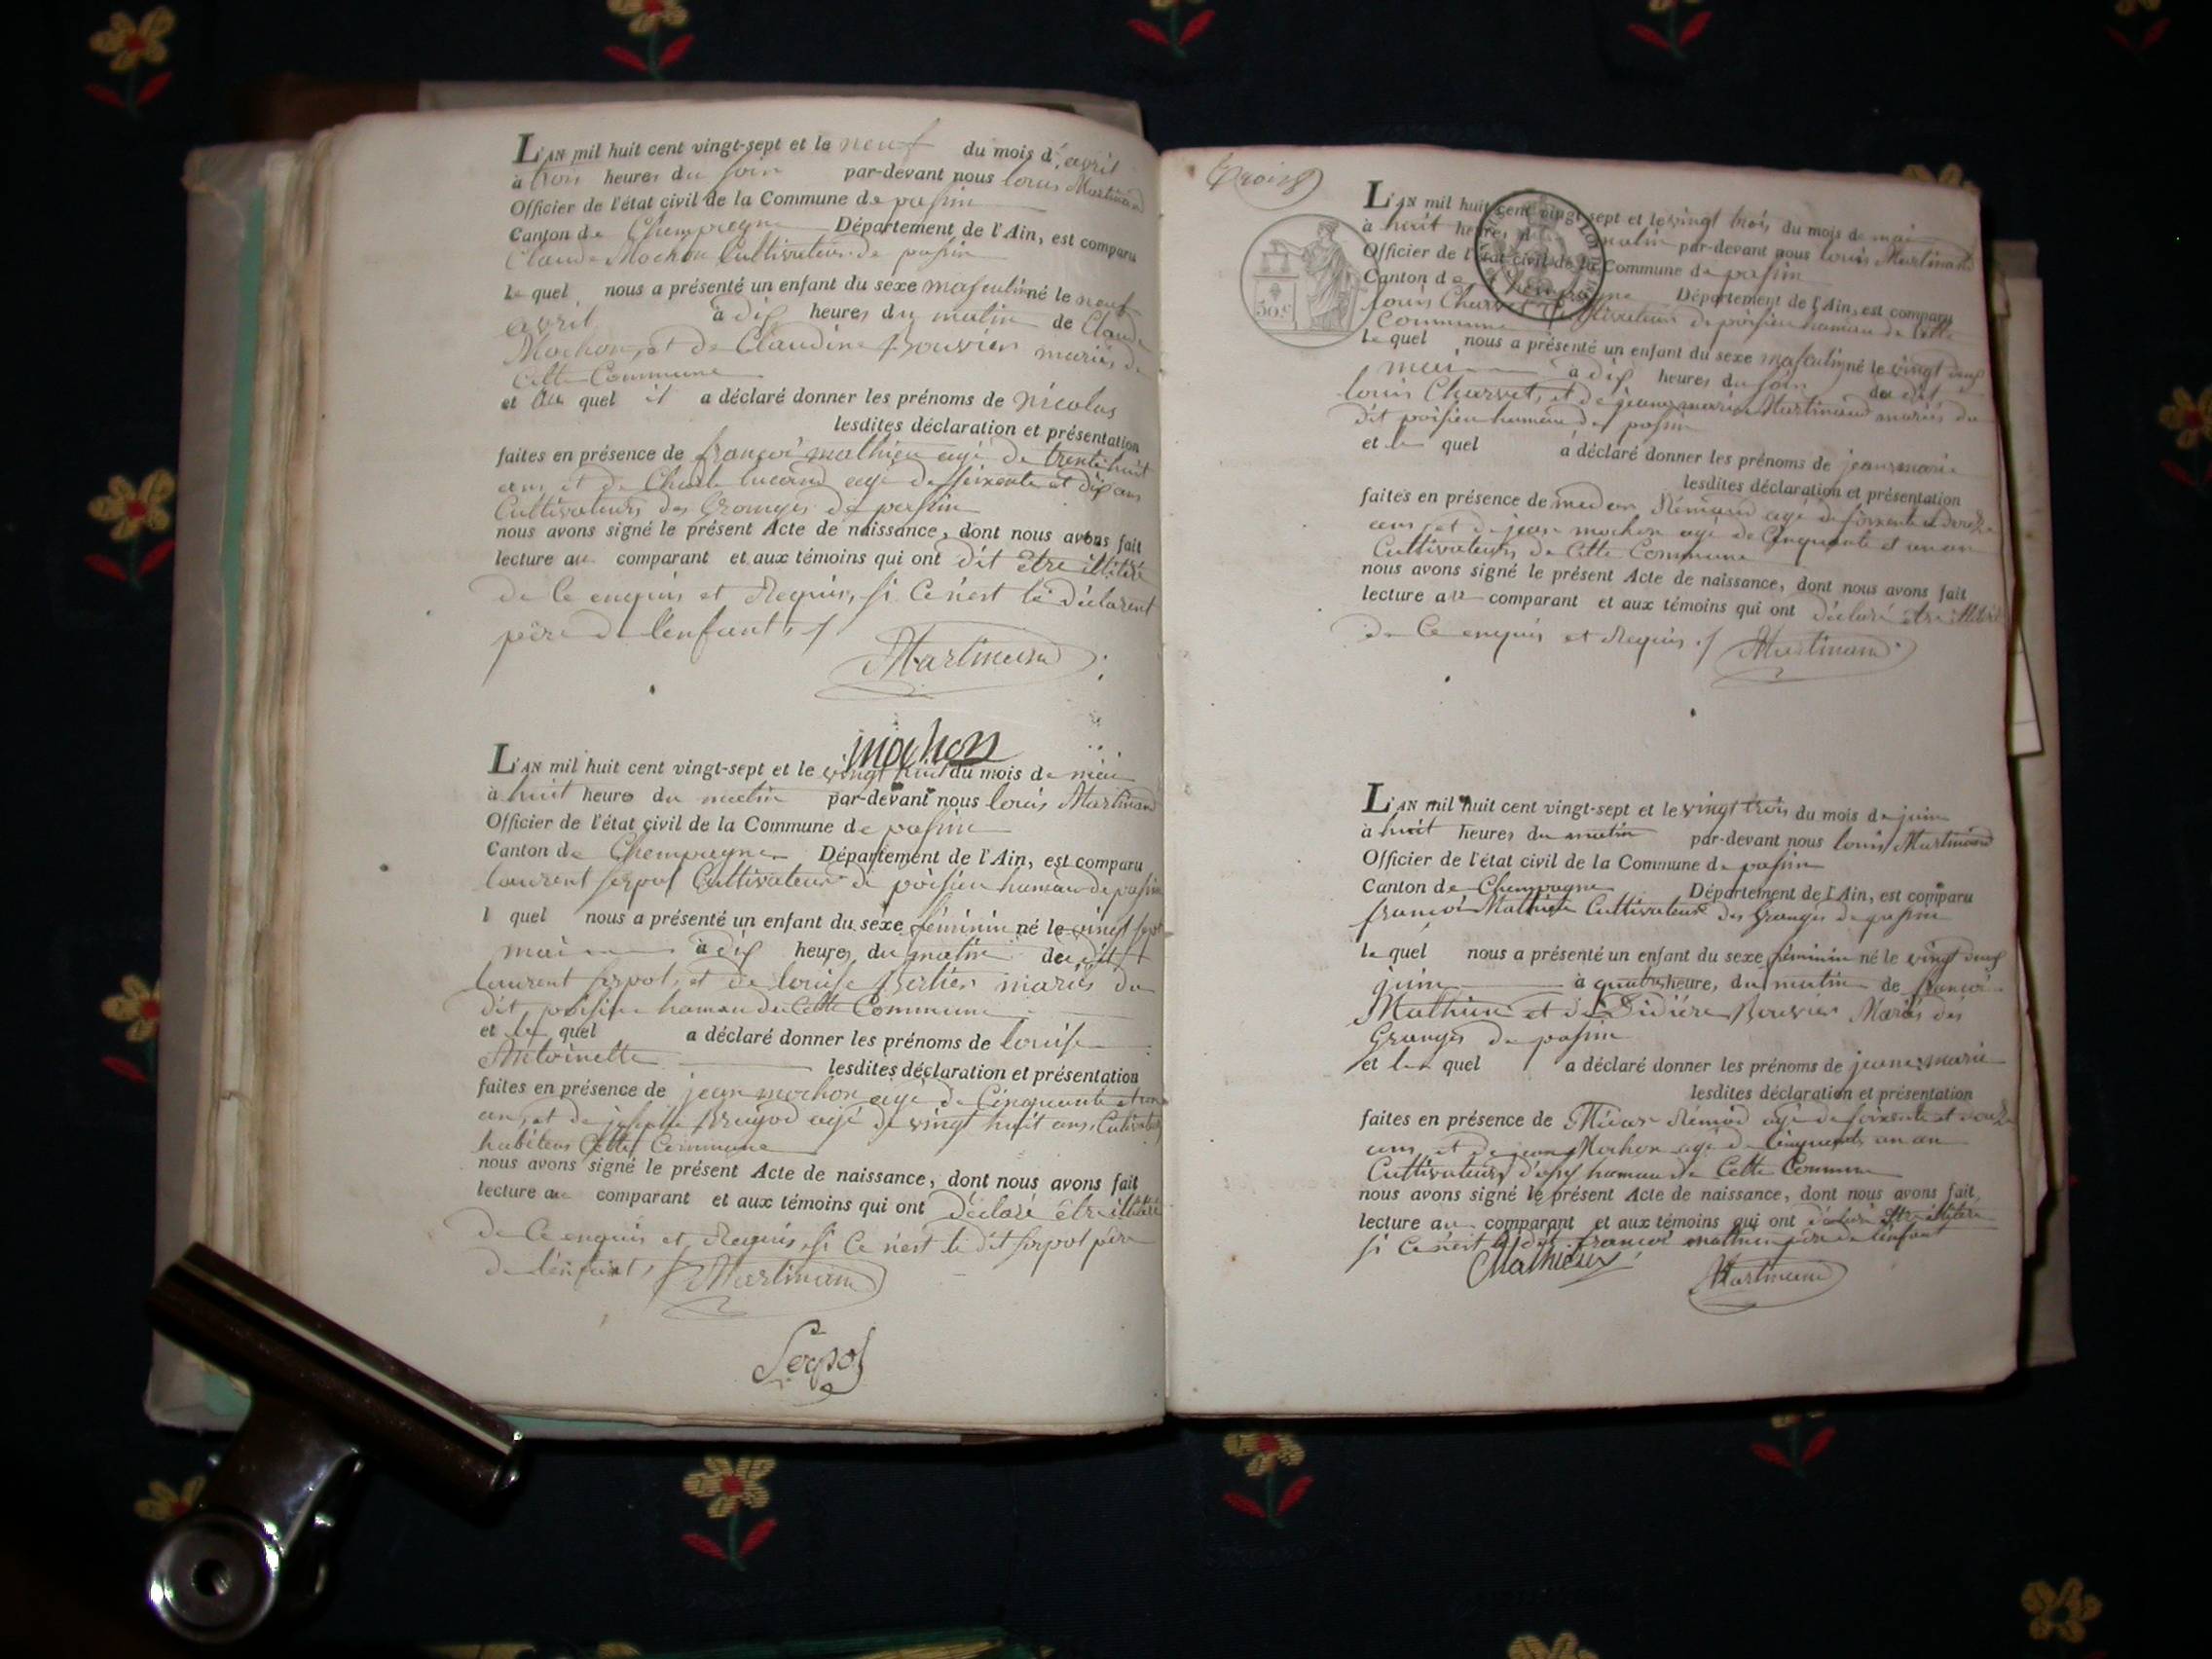 L'AN mil huit cent vingt-sept et le neuf du mois d'avril
à trois heures du soir par-devant nous louis Martinand
Officier de l'état civil de la Commune de passin
Canton de Champagne Département de l'Ain, est comparu
Claude Mochon Cultivateur de passin
le quel nous a présenté un enfant du sexe masculin né le neuf
avril à dix heures du matin de Claude
Mochon, et de Claudine Bouvier mariés de
cette Commune
et au quel il a déclaré donner les prénoms de nicolas
lesdites déclaration et présentation
faites en présence de françois mathieu agé de trente huit
ans et de Charle lucand agé de soixente et dix ans
Cultivateurs des Granges de passin
nous avons signé le présent Acte de naissance, dont nous avons fait
lecture au comparant et aux témoins qui ont dit être illitéré
de ce enquis et Requis, si Ce n'est le déclarent
père de l'enfant
Martinand
mochon
L'AN mil huit cent vingt-sept et le vingt huit du mois de mai
à huit heures du matin par-devant nous louis Martinand
Officier de l'état civil de la Commune de passin
Canton de Champagne Département de l'Ain, est comparu
laurent serpol Cultivateur de poisieu hameau de passin
l quel nous a présenté un enfant du sexe féminin né le vingt sept
mai à dix heures du matin du dit
laurent serpol, et de louise Bertier mariés du
dit poisieu hameau de Cette Commune
et le quel a déclaré donner les prénoms de louise
Antoinette lesdites déclaration et présentation
faites en présence de jean mochon agé de Cinquante et un
an, et de agé de vingt huit ans, Cultivateurs
habitens Cette Commune
nous avons signé le présent Acte de naissance, dont nous avons fait
lecture au comparant et aux témoins qui ont déclaré être illitéré
de Ce enquis et Requis, si Ce n'est le dit serpol père
de l'enfant
Martinand
Serpol
trois
50 c
L'AN mil huit cent vingt-sept et le vingt trois du mois de mai
à huit heures du matin par-devant nous louis Martinand
Officier de l'état civil de la Commune de passin
Canton de Champagne Département de l'Ain, est comparu
louis Charvet Cultivateur de poisieu hameau de Cette
Commune
le quel nous a présenté un enfant du sexe masculin né le vingt deux
mai à dix heures du soir du dit
louis Charvet, et de jeanne marie Martinand mariés du
dit poisieu hameau de passin
et le quel a déclaré donner les prénoms de jean marie
lesdites déclaration et présentation
faites en présence de Rémond agé de soixente et douze
ans, et de jean mochon agé de Cinquante et un an
Cultivateurs de Cette Commune
nous avons signé le présent Acte de naissance, dont nous avons fait
lecture au comparant et aux témoins qui ont déclaré être illitéré
de Ce enquis et Requis
Martinand
L'AN mil huit cent vingt-sept et le vingt trois du mois de juin
à huit heures du matin par-devant nous louis Martinand
Officier de l'état civil de la Commune de passin
Canton de Champagne Département de l'Ain, est comparu
françois Mathieu Cultivateur des Granges de passin
le quel nous a présenté un enfant du sexe féminin né le vingt deux
juin à quatre heures du matin de françois
Mathieu et de Didière Bouvier Mariés des
Granges de passin
et le quel a déclaré donner les prénoms de jeanne marie
lesdites déclaration et présentation
faites en présence de Rémond agé de soixente et douze
ans, et de jean Mochon agé de Cinquante un an
Cultivateurs hameau de Cette Commune
nous avons signé le présent Acte de naissance, dont nous avons fait
lecture au comparant et aux témoins qui ont déclaré être illitéré
si Ce n'est le dit françois mathieu père de l'enfant
Mathieu
Martinand